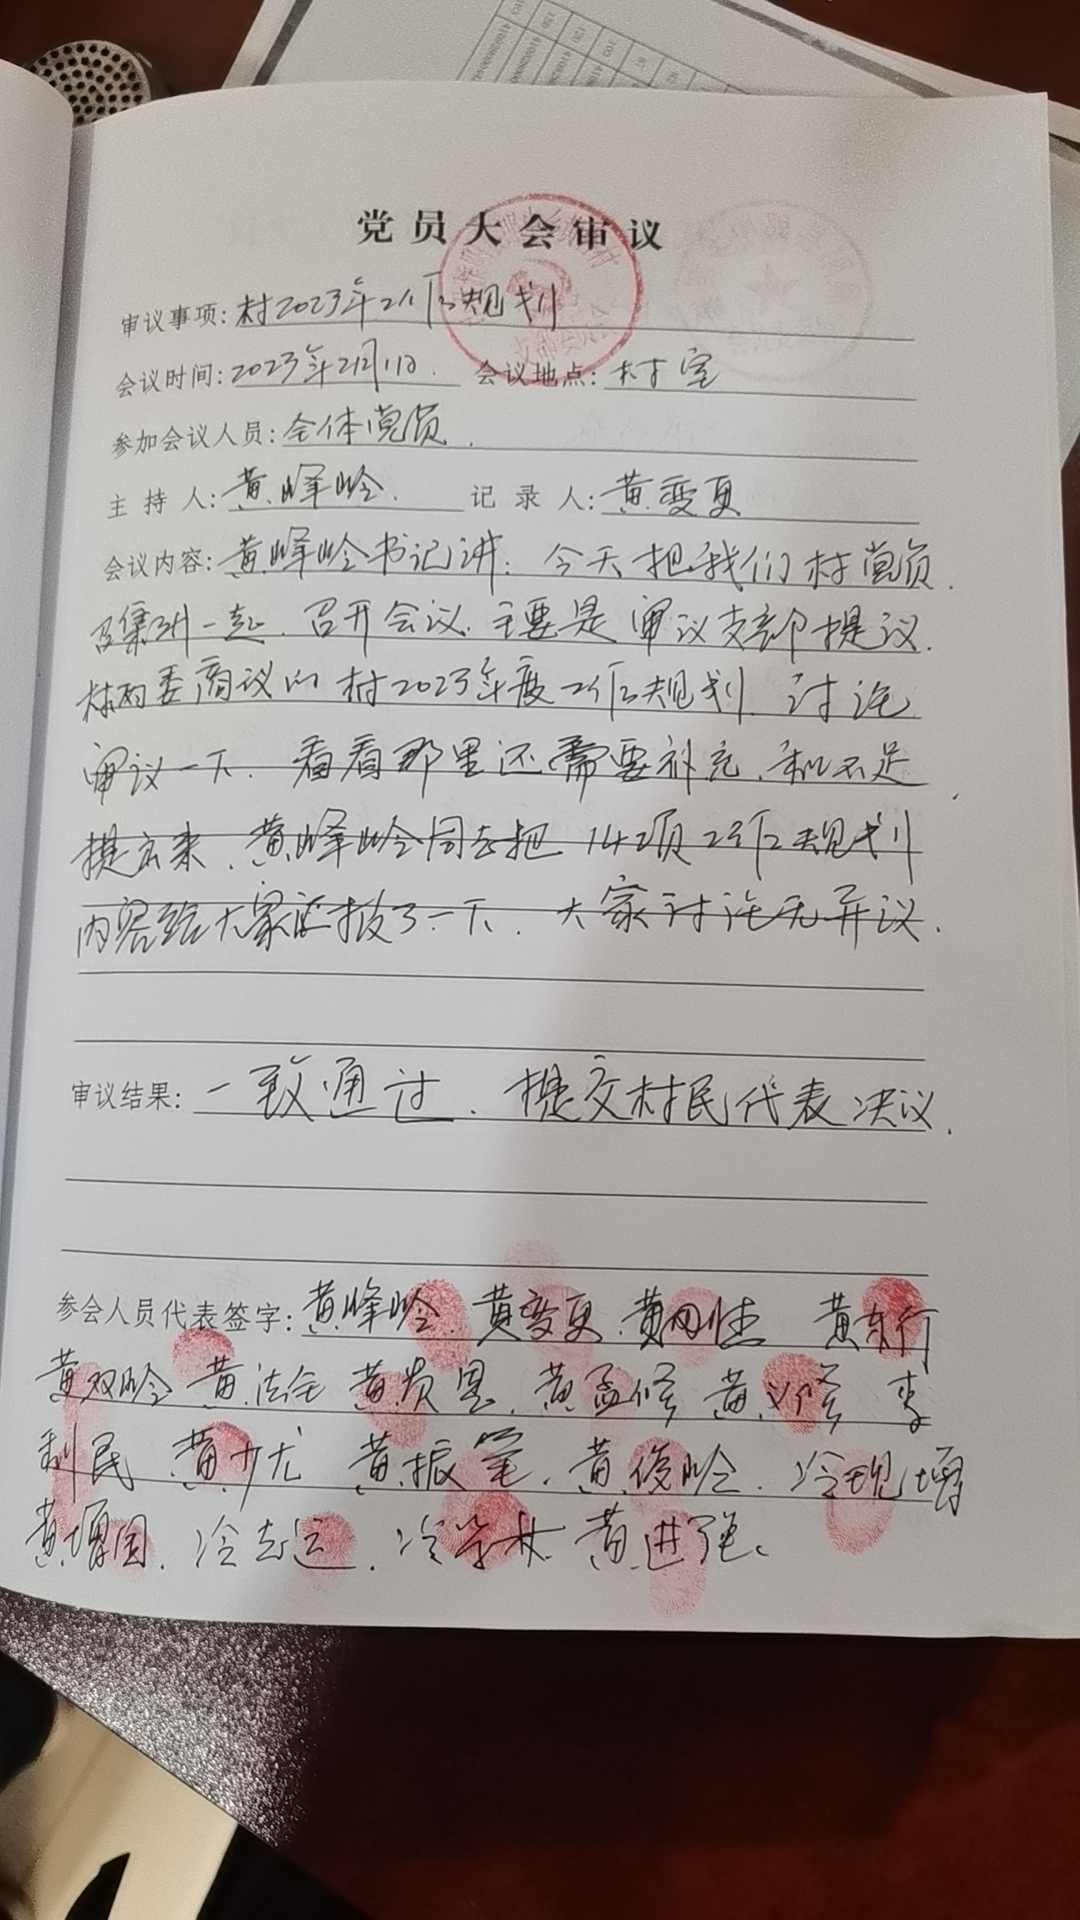 党员大会审议
审议事项:村2023年工作规划
会议时间:2023年2月1日. 会议地点:村室
参加会议人员:全体党员.
主持人:黄峰岭. 记录人:黄变夏
会议内容:黄峰岭书记讲:今天把我们村党员.
召集到一起.召开会议.主要是审议支部提议.
村两委商议的村2023年度工作规划.讨论
审议一下.看看那里还需要补充.和不足.
提出来.黄峰岭同志把14项工作规划
内容给大家汇报了一下.大家讨论无异议.
审议结果:一致通过.提交村民代表决议.
参会人员代表签字:黄峰岭.黄变夏 黄东行
黄双岭 黄法 黄贵 黄孟修 黄义修 李
利民 黄少尤 黄振 黄俊岭.冷现增
黄增国.冷志运.冷学林 黄进强.